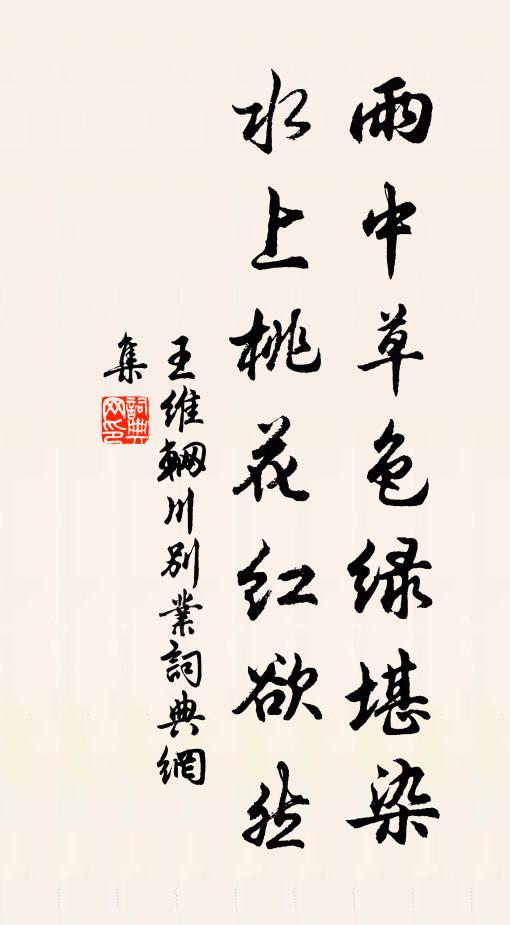 雨中草色绿堪染
水上桃花红欲然
王维輞川别業詞典網
集
詞典
网印